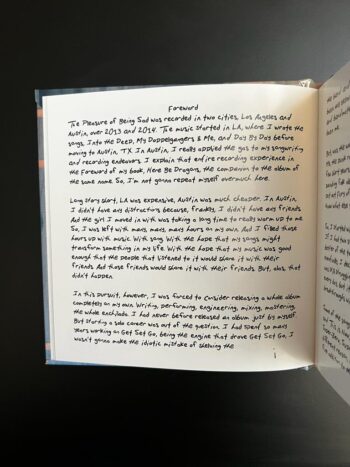 Foreword
The Pleasure of Being Sad was recorded in two cities, Los Angeles and
Austin, over 2013 and 2014. The music started in LA, where I wrote the
songs, Into the Deep, My Doppelgangers & Me, and Day By Day before
moving to Austin, TX. In Austin, I really applied the gas to my songwriting
and recording endeavors. I explain that entire recording experience in
the Foreword of my book, Here Be Dragons, the companion to the album of
the same name. So, I'm not gonna repeat myself overmuch here.
Long story short, LA was expensive, Austin was much cheaper. In Austin,
I didn't have any distractions because, frankly, I didn't have any friends.
And the girl I moved in with was taking a long time to really warm up to me.
So, I was left with many, many, many hours on my own. And I filled those
hours up with music. With song. With the hope that my songs might
transform something in my life. With the hope that my music was good
enough that the people that listened to it would share it with their
friends. And those friends would share it with their friends. But, alas, that
didn't happen.
In this pursuit, however, I was forced to consider releasing a whole album
completely on my own. Writing, performing, engineering, mixing, mastering,
the whole enchilada. I had never before released an album just by myself.
But starting a solo career was out of the question. I had spent so many
years working on Get Set Go, being the engine that drove Get Set Go, I
wasn't gonna make the idiotic mistake of shelving the
i